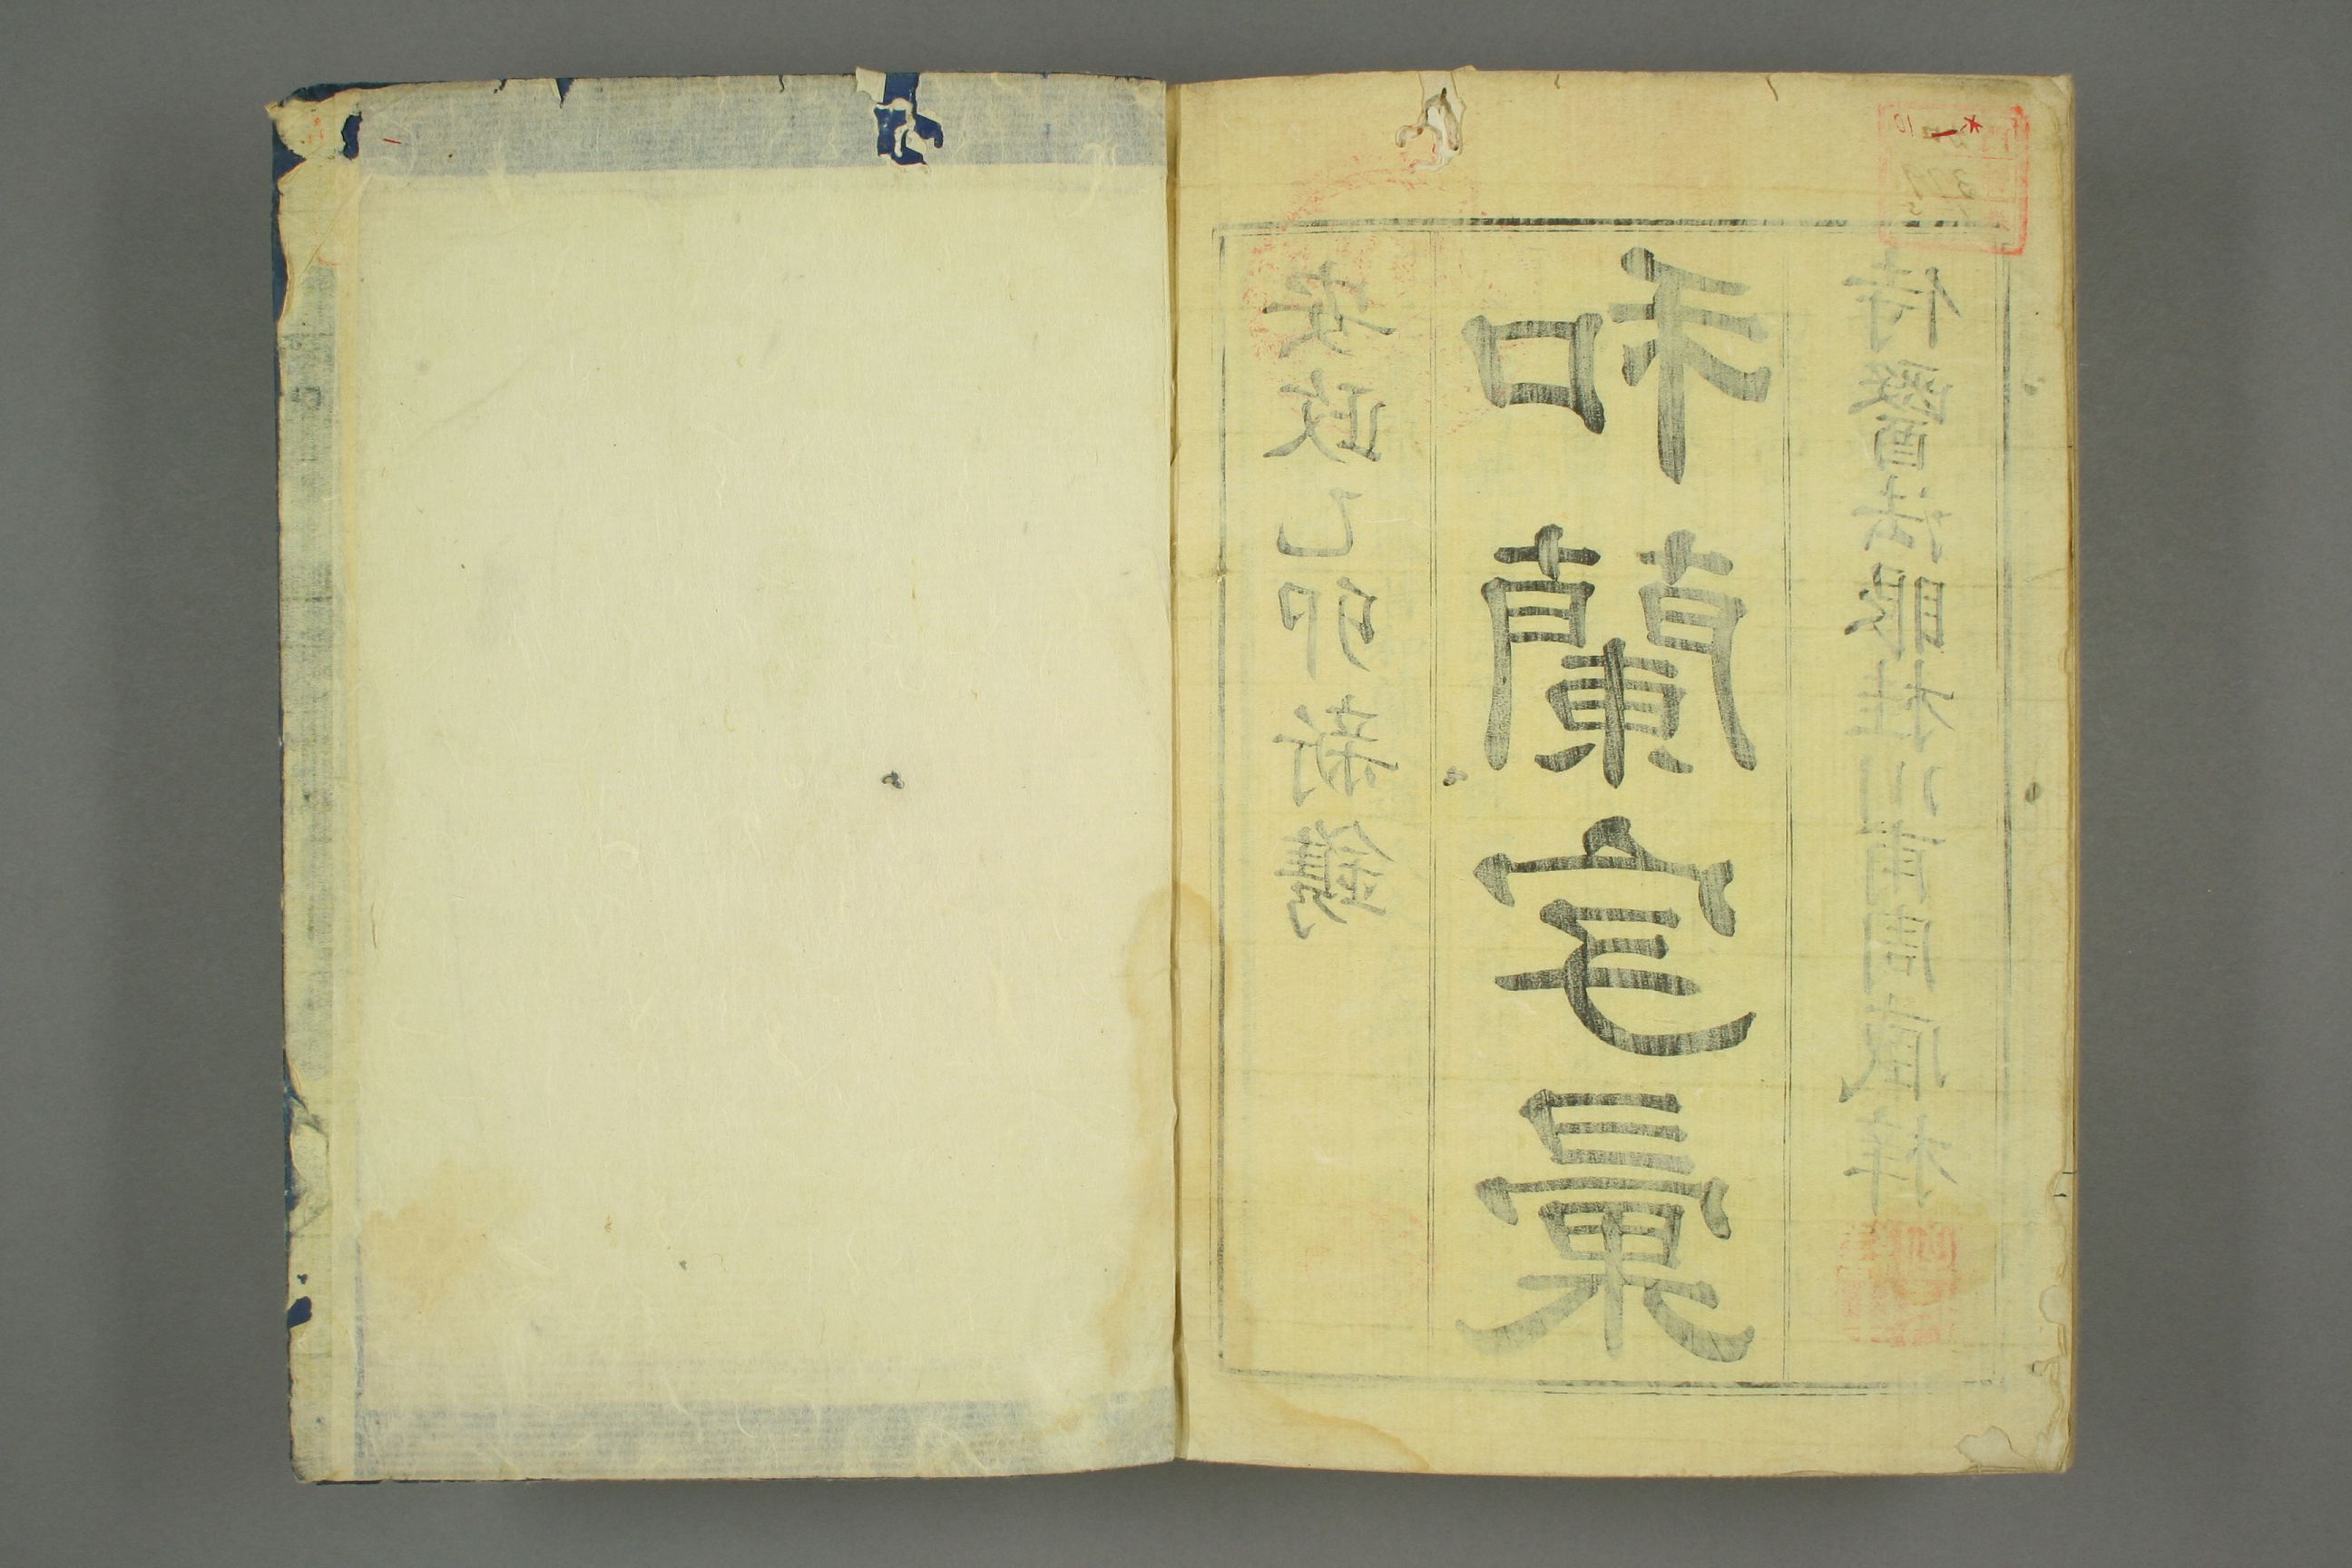 安政乙卯新鐫
和蘭字彙
侍醫法眼桂川甫周藏梓